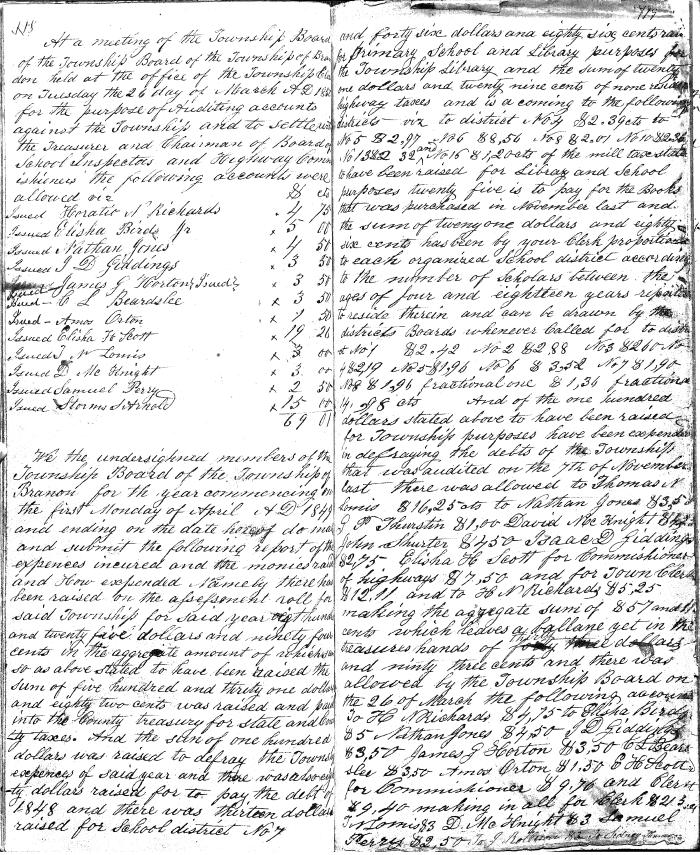 118
At a meeting of the Township Board
of the Township Board of the Township of Bran
don held at the office of the Township Cle
on Tuesday the 26 day of March A.D. 185
for the purpose of Auditing accounts
against the Township and to settle
the Treasurer and Chairman of Board of
School Inspectors and Highway Comm
ishiners the following accounts were
allowed viz $ cts
Issued Horatio N Richards x 4 75
Issued Elisha Birds Jr x 5 00
Issued Nathan Jones x 4 50
Issued I D Giddings x 3 50
Issued James G Horton, Issued x 3 50
Issued - C L Beardslee x 3 50
Issued - Amos Orton x 1 50
Issued Elisha H Scott x 19 21
Issued J. N Lomis x 3 00
Issued D. Mc Knight x 3 00
Issued Samuel Perry x 2 50
Issued Storms & Arnold x 15 00
69 01
We the undersighned members of the
Township Board of the Township of
Branon for th year commencing on
the first Monday of April A D 1849
and ending on the date hereof do ma
and submit the following report of the
expences incured and the monies raise
and How expended Namely there has
been raised on the assessment roll for
said Township for said year hund
and twenty five dollars and ninety four
cents in the aggreate amount of which
so as above stated to have been raised the
sum of five hundred and thrity one dollar
and eighty two cents was raised and paid
into the County treasury for state and Coun
ty taxes. And the sum of one hundred
dollars was raised to defray the Towns
expences of said year and there was also
ty dollars raised for to pay the debt of
1848 and there was thirteen dollars
raised for School district No 7
119
and forty six dollars ana eighty six cents rai
for Primary School and Library purposes for
the Township Library and the sum of twenty
one dollars and twenty nine cents of none reside
highway taxes and is a coming to the following
districts viz to district No 4 $2.39 cts to
No 5 $2,97 No 6 $8,56 No 9 $2.01 No 10
No 15 $1,20 cts of the mill tax state
to have been raised for Libray and School
purposes twenty five is to pay for the Books
that was purchased in November last and
the sum of twenyone dollars and eighty
six cents has been by your Clerk proportioned
to each organized School district according
to the number of Scholars between the
ages of four and eighteen years reported
to reside therein and can be drawn by the
districts Boards whenever Called for to distri
ct No 1 $2.42 No 2 $2.88 No 3 $2.60 No
4 $2,19 No 5 $1,96 No 6 $3.52 No 7 $1,90
No 8 $1,96 fractional one $1,36 fractiona
98 cts And of the one hundred
dollars stated above to have been raised
for Township purposes have been expended
in defraying the debts of the Township
that was audited on the 7th of November
last there was allowed to Thomas N
Lomis $16,25 cts to Nathan Jones $3,5
G P Thurstin $1,00 David Mc Knight
John Thurter $4,50 Isaac D Giddings
$2,75 Elisha H Scott for Commissioner
of highways $7,50 and for Town Clerk
$12,11 and to H N Richards $5,25
making the aggregate sum of $57 and
cents which leaves a ballane yet in the
treasurers hands of forty three dollars
and ninty three cents and there was
allowed by the Township Board on
the 26 of March the following accounts
To H N Richards $4,75 to Elisha Birds
$5 Nathan Jones $4,50 I D Gidding
$3,50 James G Horton $3,50 C L Beards
slee $3,50 Amos Orton $1,50 E H Scott
for Commissioner $9,76 and Clerk
$9,40 making in all for Clerk
Lomis $3 D. Mc Knight $3 Samuel
Perry $2,50 to